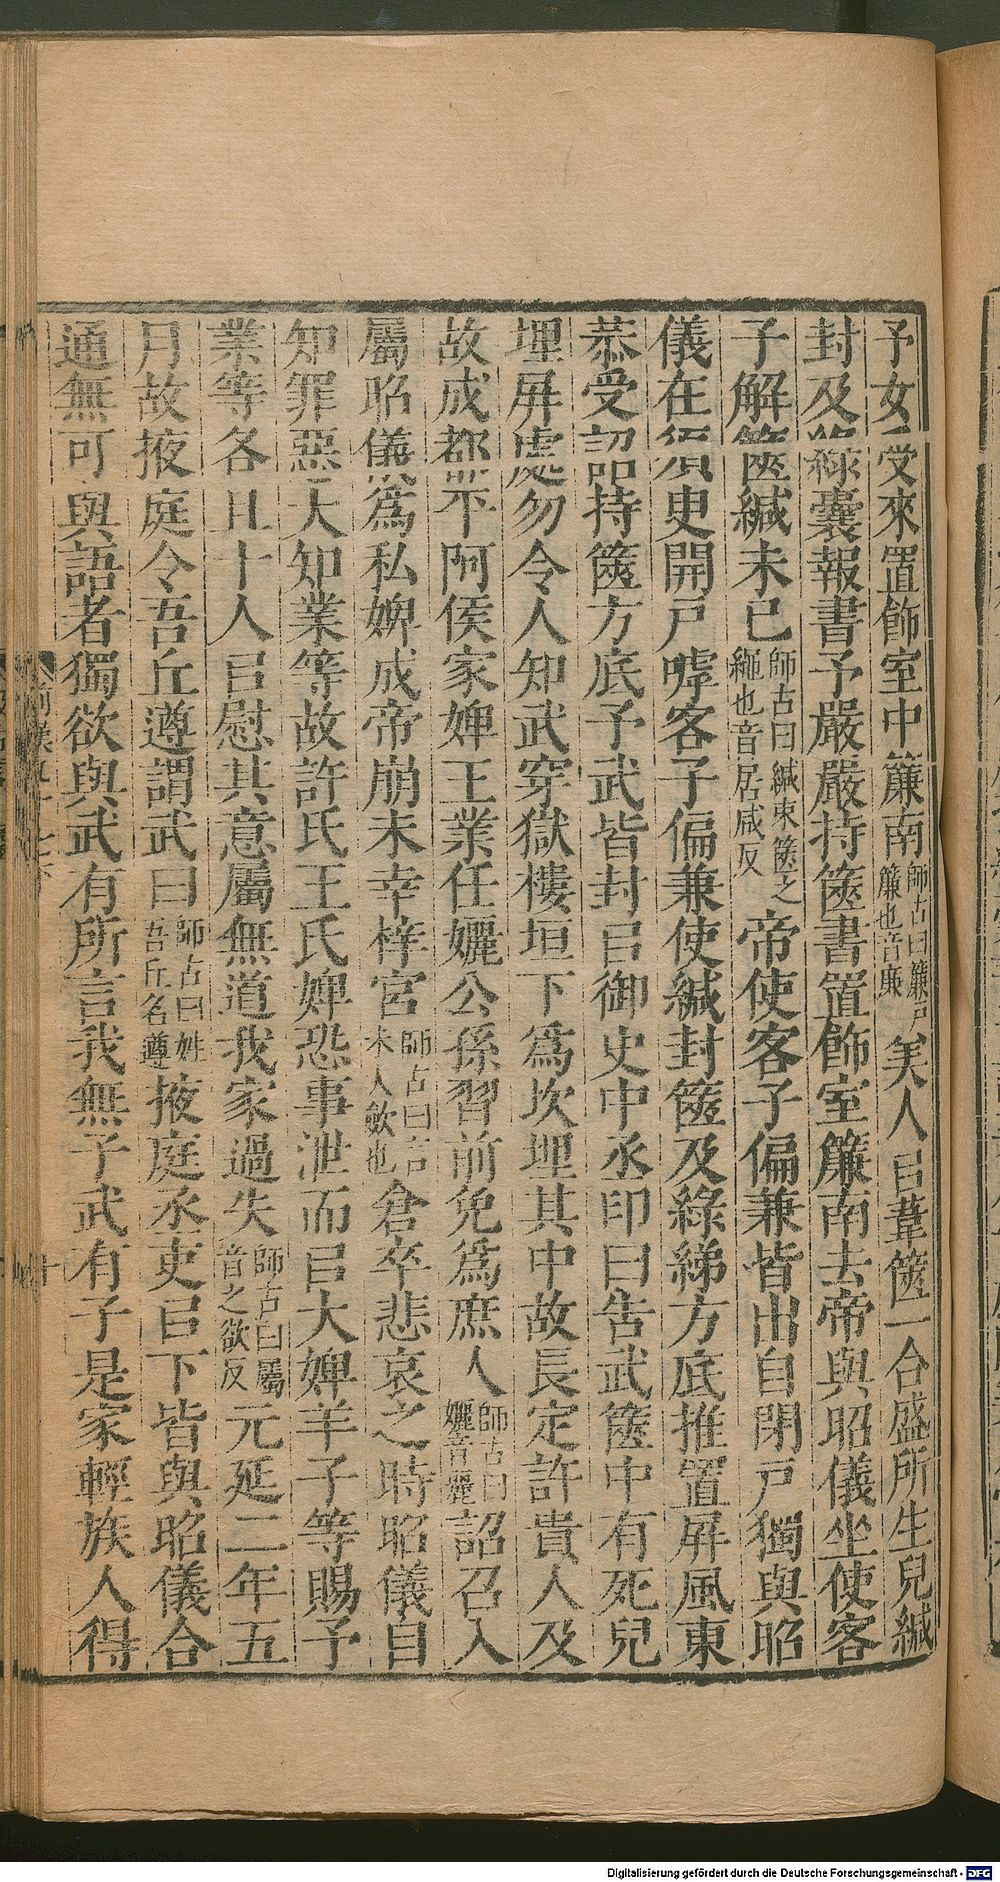 予女受來置飾室中簾南師古曰簾戶簾也音廉美人㠯葦篋一合盛所生兒緘
封及綠囊報書予嚴嚴持篋書置飾室簾南去帝與昭儀坐使客
子解篋緘未已師古曰緘束篋之繩也音居咸反帝使客子偏兼皆出自閉戶獨與昭
儀在須臾開戶嘑客子偏兼使緘封篋及綠綈方底推置屏風東
恭受詔持篋方底予武皆封㠯御史中丞印曰告武篋中有死兒
埋屏處勿令人知武穿獄樓垣下爲坎埋其中故長定許貴人及
故成都平阿侯家婢王業任孋公孫習前免爲庶人師古曰孋音麗詔召入
屬昭儀爲私婢成帝崩未幸梓宮師古曰言未入斂也倉卒悲哀之時昭儀自
知罪惡大知業等故許氏王氏婢恐事泄而㠯大婢羊子等賜予
業等各且十人㠯慰其意屬無道我家過失師古曰屬音之欲反元延二年五
月故掖庭令吾丘遵謂武曰師古曰姓吾丘名遵掖庭丞吏㠯下皆與昭儀合
通無可與語者獨欲與武有所言我無子武有子是家輕族人得
Digitalisierung gefördert durch die Deutsche Forschungsgemeinschaft - DFG